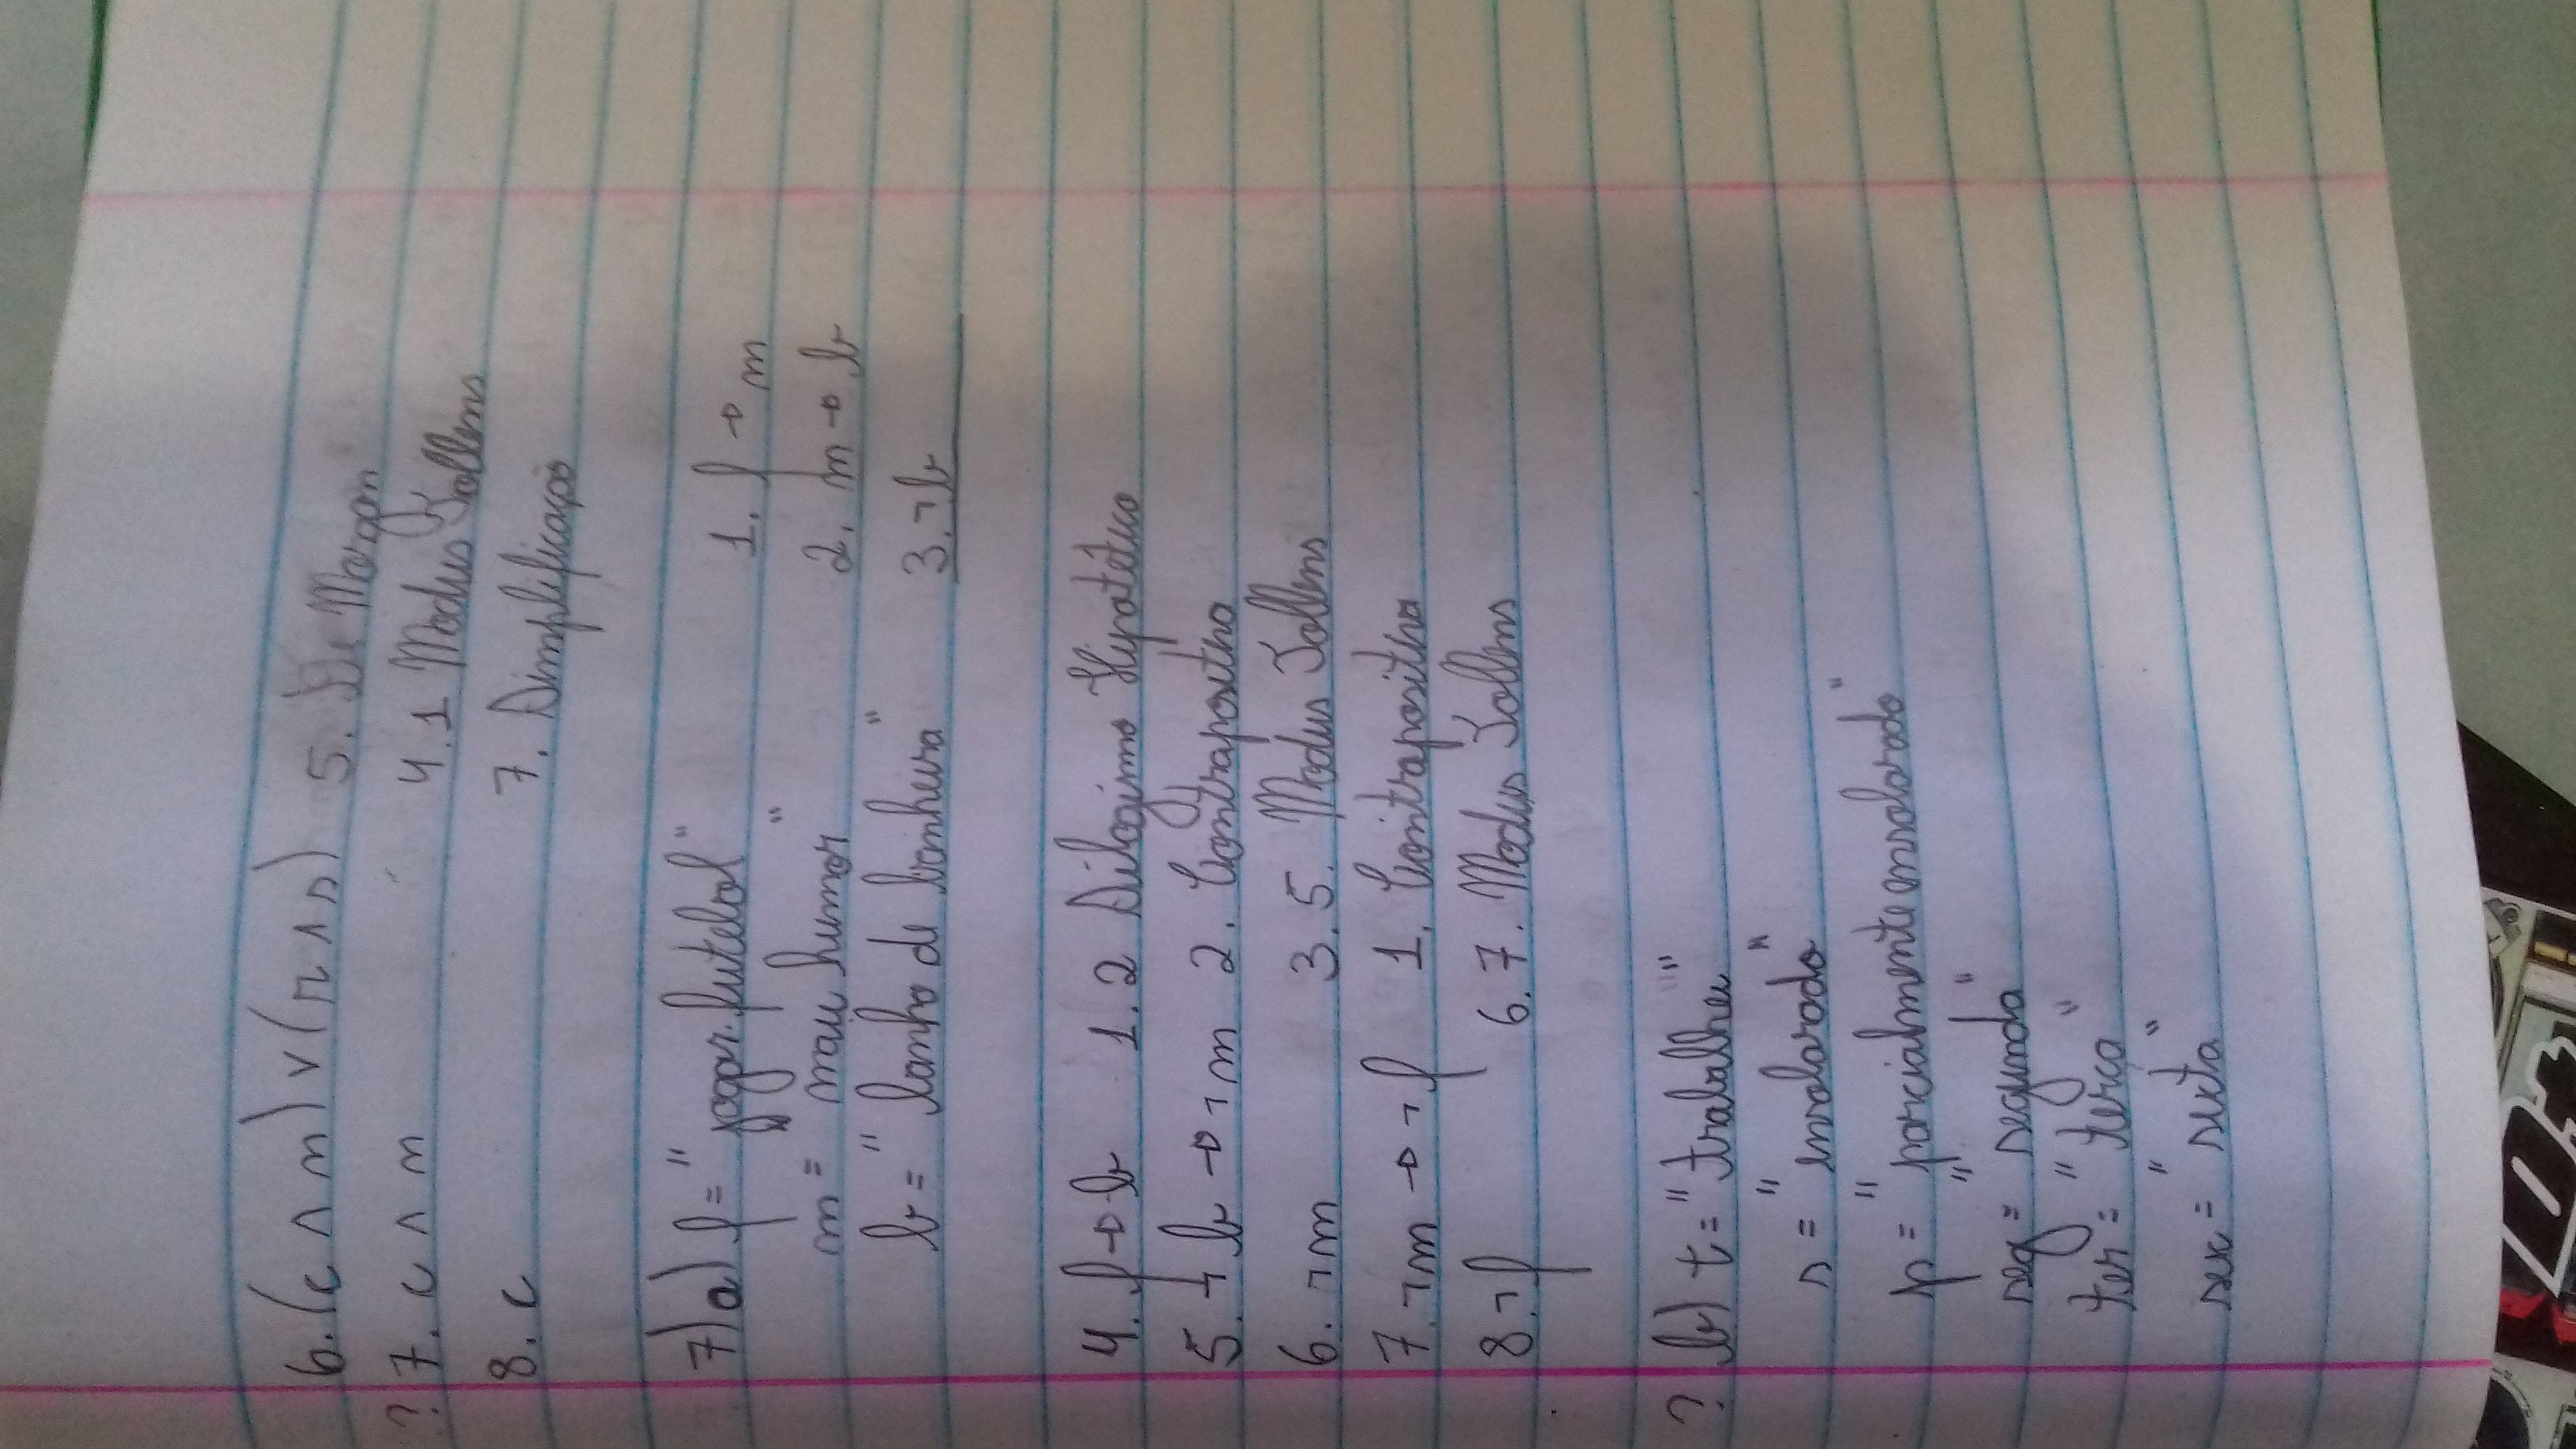 6. (c ∧ m) ∨ (r ∧ s) 5. De Morgan
? 7. c ∧ m 4.1 Modus Tollens
8. c 7. Simplificação
7) a) f = "jogar futebol" 1. f → m
m = mau humor" 2. m → b
b = "banho de banheira" 3. ¬b
4. f → b 1.2 Silogismo Hipotético
5. ¬b → ¬m 2. Contrapositiva
6. ¬m 3.5. Modus Tollens
7. ¬m → ¬f 1. Contrapositiva
8. ¬f 6.7. Modus Tollens
? b) t = "trabalhei"
s = "ensolarado"
p = "parcialmente ensolarado"
seg = "segunda"
ter = "terça"
sex = "sexta"